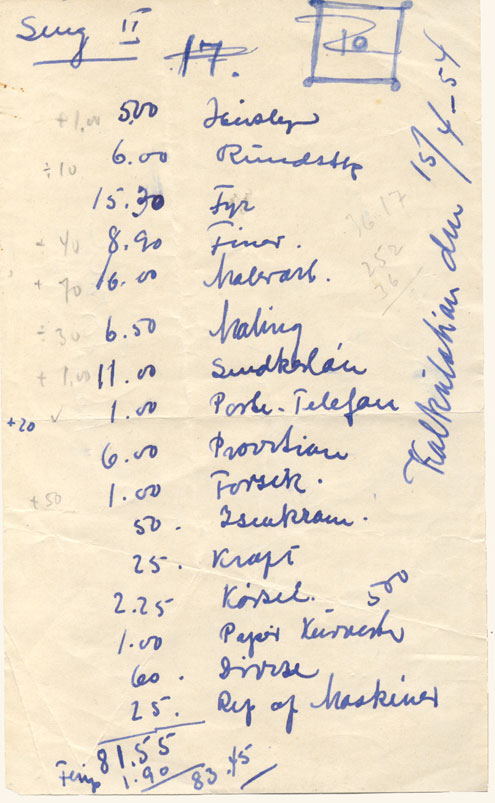 Seng II 17.
Kalkulation den 15/4-54
+1.00 5.00
÷10 6.00 Rundstok
15.30 Fyr
+40 8.90 Finer.
+70 16.00 Malerarb.
÷30 6.50 Maling
+1.00 11.00 Snedkerlön
+20 ✓ 1.00 Porto-Telefon
6.00 Provision
+50 1.00 Forsik.
50. Isenkram.
25. Kraft
2.25 Körsel. 500
1.00 Papir
60. Diverse
25. Rep af Maskiner
81.55
1.90 83.45
3617
252
36